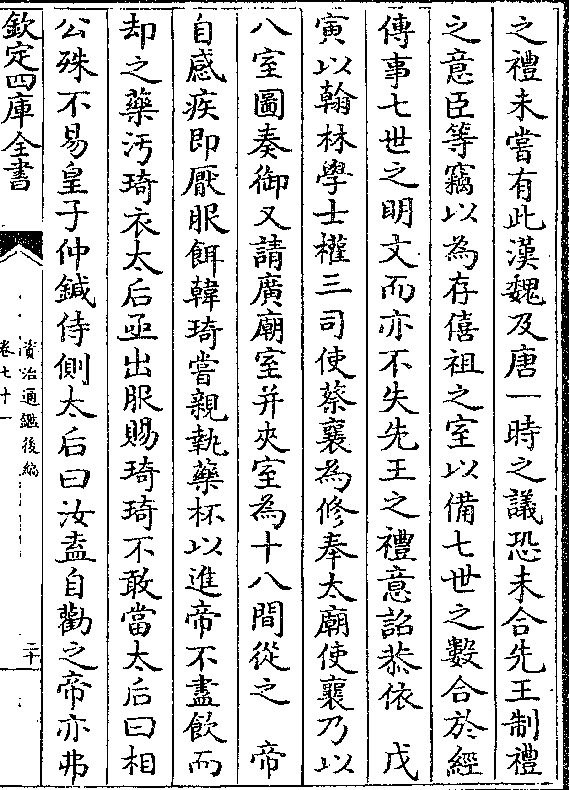 之禮未嘗有此漢魏及唐一時之議恐未合先王制禮
之意臣等竊以為存僖祖之室以備七世之數合於經
傳事七世之明文而亦不失先王之禮意詔恭依　戊
寅以翰林學士權三司使蔡襄為修奉太廟使襄乃以
八室圖奏御又請廣廟室并夾室為十八間從之　帝
自感疾即厭服餌韓琦嘗親執藥杯以進帝不盡飲而
却之藥汚琦衣太后亟出服賜琦琦不敢當太后曰相
公殊不易皇子仲鍼侍側太后曰汝盍自勸之帝亦弗
欽定四庫全書
資治通鑑後編
卷七十一
二十